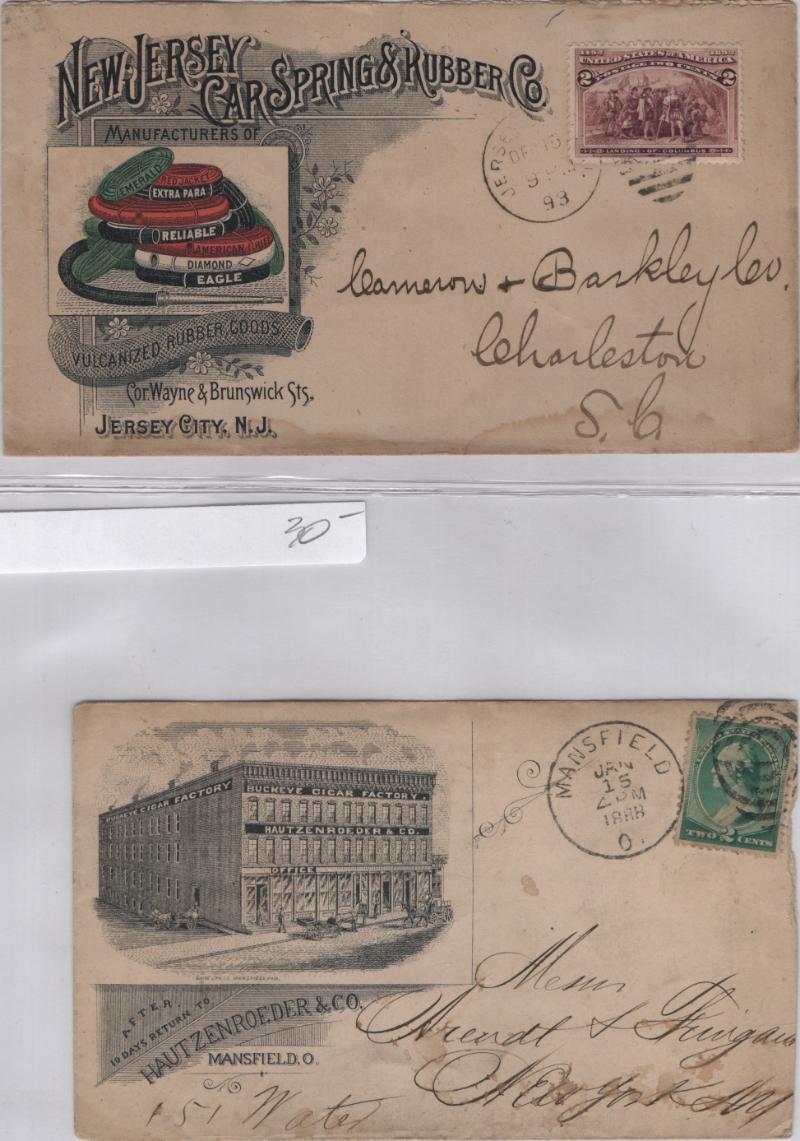 NEW JERSEY
CAR SPRING & RUBBER CO.
MANUFACTURERS OF
EMERALD
RED JACKET
EXTRA PARA
RELIABLE
AMERICAN
DIAMOND
EAGLE
VULCANIZED RUBBER GOODS
Cor. Wayne & Brunswick Sts.
JERSEY CITY, N.J.
1492 1892
UNITED STATES OF AMERICA
2 POSTAGE TWO CENTS 2
LANDING OF COLUMBUS
93
Cameron & Barkley Co.
Charleston
S. C.
30-
BUCKEYE CIGAR FACTORY
BUCKEYE CIGAR FACTORY.
HAUTZENROEDER & CO.
OFFICE
AFTER
10 DAYS RETURN TO
HAUTZENROEDER & CO.
MANSFIELD, O.
MANSFIELD
JAN
15
1888
O.
TWO 2 CENTS
Messrs
Arendt &
New York NY
151 Water